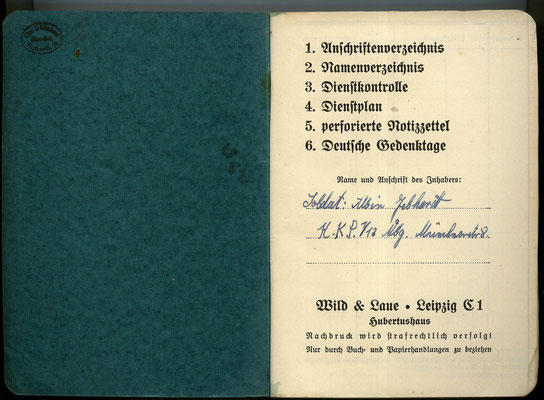 1. Anschriftenverzeichnis
2. Namenverzeichnis
3. Dienstkontrolle
4. Dienstplan
5. perforierte Notizzettel
6. Deutsche Gedenktage
Name und Anschrift des Inhabers:
Soldat: Albin Gebhardt
H.K.P. Abg.
Wild & Laue • Leipzig C 1
Hubertushaus
Nachdruck wird strafrechtlich verfolgt
Nur durch Buch- und Papierhandlungen zu beziehen